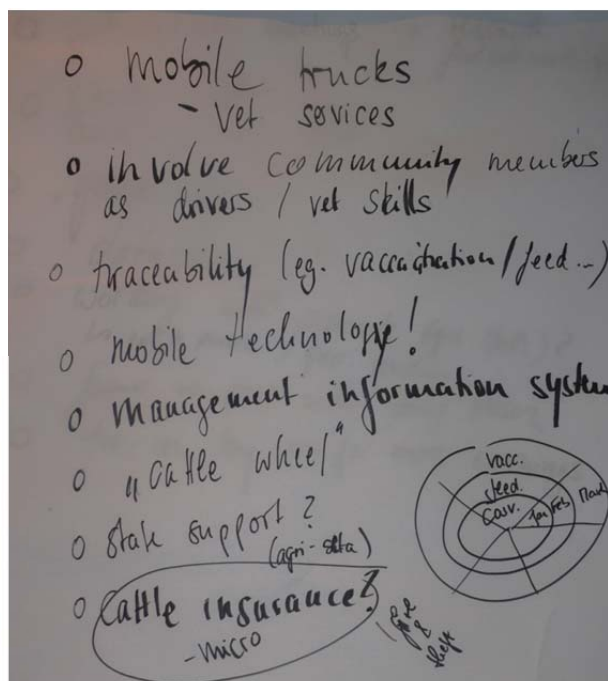 o mobile trucks
- vet sovices
o involve community members
as drivers / vet skills
o traceability (eg. vaccaination / feed ...)
o mobile technologie!
o management information system
o „cattle wheel"
o state support?
(agri-seta)
o cattle insurance?
- micro
&
theft
vacc.
Jan Feb March